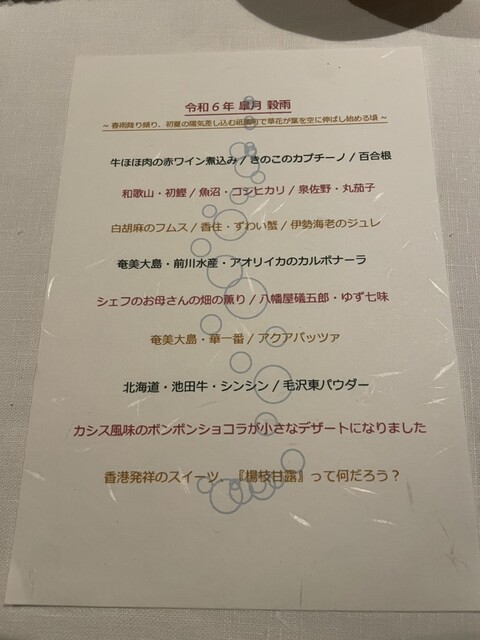 令和6年 皐月 穀雨
~ 春雨降り頻り、初夏の陽気差し込む祇園町で草花が葉を空に伸ばし始める頃 ~
牛ほほ肉の赤ワイン煮込み / きのこのカプチーノ / 百合根
和歌山・初鰹 / 魚沼・コシヒカリ / 泉佐野・丸茄子
白胡麻のフムス / 香住・ずわい蟹 / 伊勢海老のジュレ
奄美大島・前川水産・アオリイカのカルボナーラ
シェフのお母さんの畑の薫り / 八幡屋礒五郎・ゆず七味
奄美大島・華一番 / アクアパッツァ
北海道・池田牛・シンシン / 毛沢東パウダー
カシス風味のボンボンショコラが小さなデザートになりました
香港発祥のスイーツ、『楊枝甘露』って何だろう?